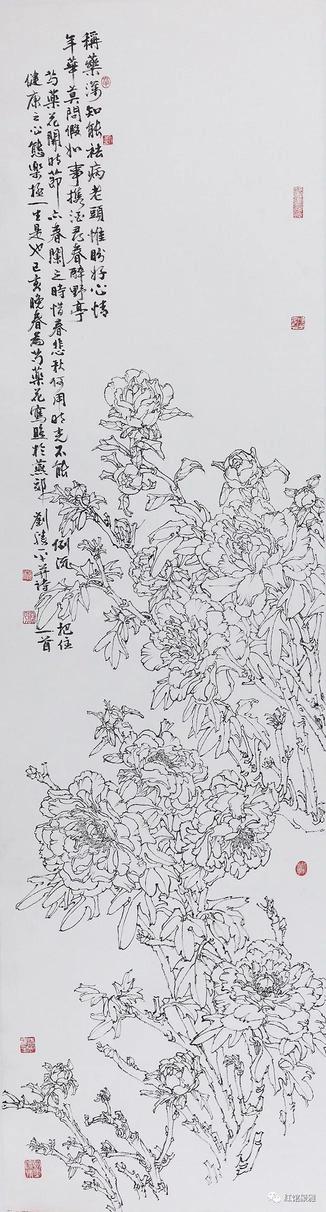 稱藥深知能祛病老頭惟盼好心情
年華莫問假如事攜酒尋春醉野亭
芍藥花開時節亦春闌之時惜春悲秋何用時光不能倒流把住
健康之心態樂極一生是也己亥晚春為芍藥花寫照於燕郊劉
并詩一首